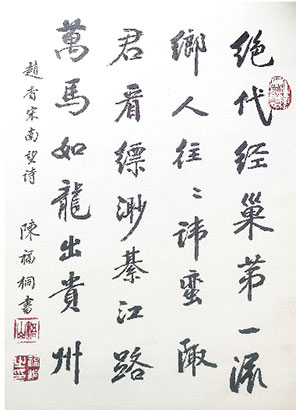 绝代经巢第一流
鄉人往〻諱蠻陬
君看缥渺綦江路
萬馬如龍出貴州
趙香宋南望诗
陳福桐書